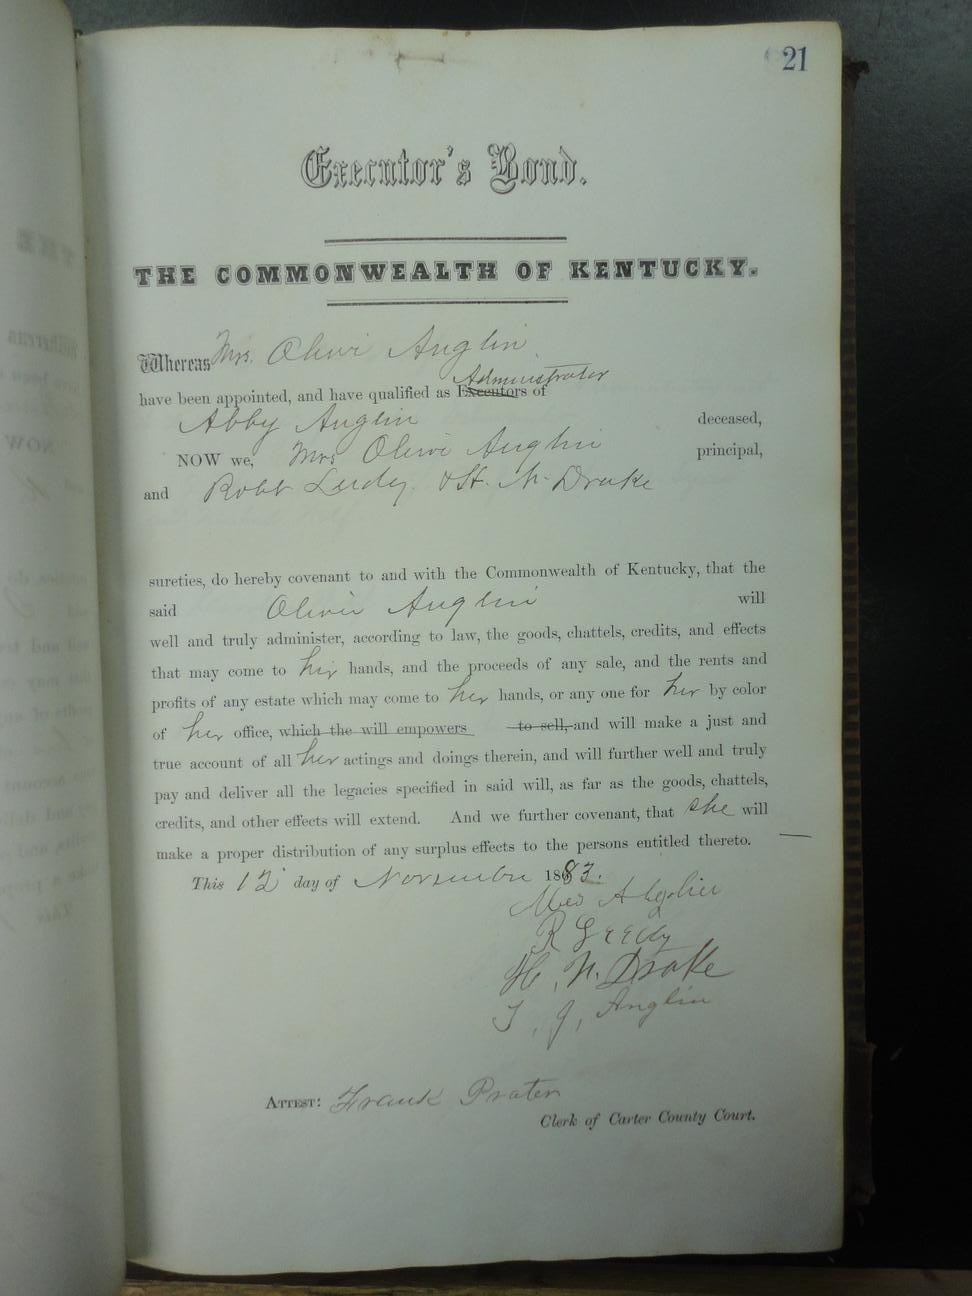 21
Executor's Bond.
THE COMMONWEALTH OF KENTUCKY.
Whereas Mrs. Olivi Anglin
Administrator
have been appointed, and have qualified as Executors of
Abby Anglin deceased,
NOW we, Mrs Olivi Anglin principal,
and Robt & H. N. Drake
sureties, do hereby covenant to and with the Commonwealth of Kentucky, that the
said Olivi Anglin will
well and truly administer, according to law, the goods, chattels, credits, and effects
that may come to her hands, and the proceeds of any sale, and the rents and
profits of any estate which may come to her hands, or any one for her by color
of her office, which the will empowers to sell, and will make a just and
true account of all her actings and doings therein, and will further well and truly
pay and deliver all the legacies specified in said will, as far as the goods, chattels,
credits, and other effects will extend. And we further covenant, that she will
make a proper distribution of any surplus effects to the persons entitled thereto.
This 12 day of November 1883.
R
H. N. Drake
T. J. Anglin
ATTEST: Frank Prater
Clerk of Carter County Court.